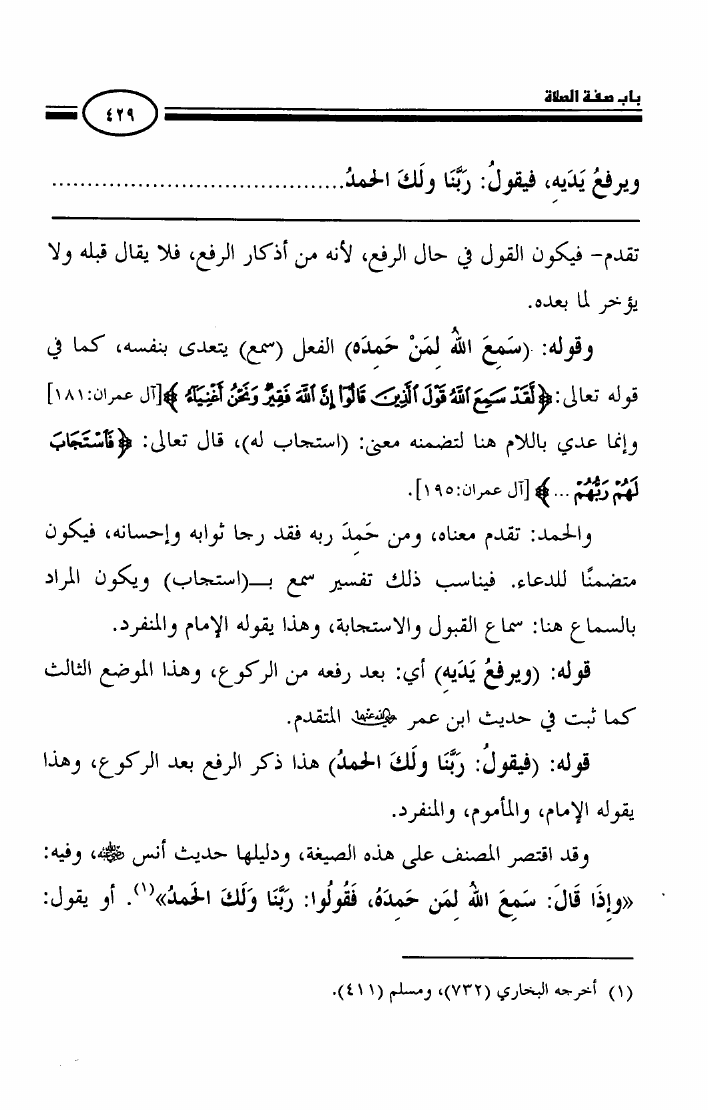 باب صفة الصلاة
٤٢٩
ويرفعُ يَدَيهِ، فيقولُ: رَبَّنَا ولَكَ الحمدُ.........................................
تقدم- فيكون القول في حال الرفع، لأنه من أذكار الرفع، فلا يقال قبله ولا
يؤخر لما بعده.
وقوله: (سَمِعَ اللهُ لِمَنْ حَمِدَه) الفعل (سمع) يتعدى بنفسه، كما في
قوله تعالى: ﴿لَّقَدْ سَمِعَ ٱللَّهُ قَوْلَ ٱلَّذِينَ قَالُوٓا۟ إِنَّ ٱللَّهَ فَقِيرٌ وَنَحْنُ أَغْنِيَآءُ﴾ [آل عمران:١٨١]
وإنما عدي باللام هنا لتضمنه معنى: (استجاب له)، قال تعالى: ﴿فَٱسْتَجَابَ
لَهُمْ رَبُّهُمْ ...﴾ [آل عمران:١٩٥].
والحمد: تقدم معناه، ومن حَمِدَ ربه فقد رجا ثوابه وإحسانه، فيكون
متضمنًا للدعاء. فيناسب ذلك تفسير سمع بـ(استجاب) ويكون المراد
بالسماع هنا: سماع القبول والاستجابة، وهذا يقوله الإمام والمنفرد.
قوله: (ويرفعُ يَدَيهِ) أي: بعد رفعه من الركوع، وهذا الموضع الثالث
كما ثبت في حديث ابن عمر رضي الله عنهما المتقدم.
قوله: (فيقولُ: رَبَّنَا ولَكَ الحمدُ) هذا ذكر الرفع بعد الركوع، وهذا
يقوله الإمام، والمأموم، والمنفرد.
وقد اقتصر المصنف على هذه الصيغة، ودليلها حديث أنس رضي الله عنه، وفيه:
«وإِذَا قَالَ: سَمِعَ اللهُ لِمَن حَمِدَهُ، فَقُولُوا: رَبَّنَا وَلَكَ الحَمدُ»(١). أو يقول:
(١) أخرجه البخاري (٧٣٢)، ومسلم (٤١١).